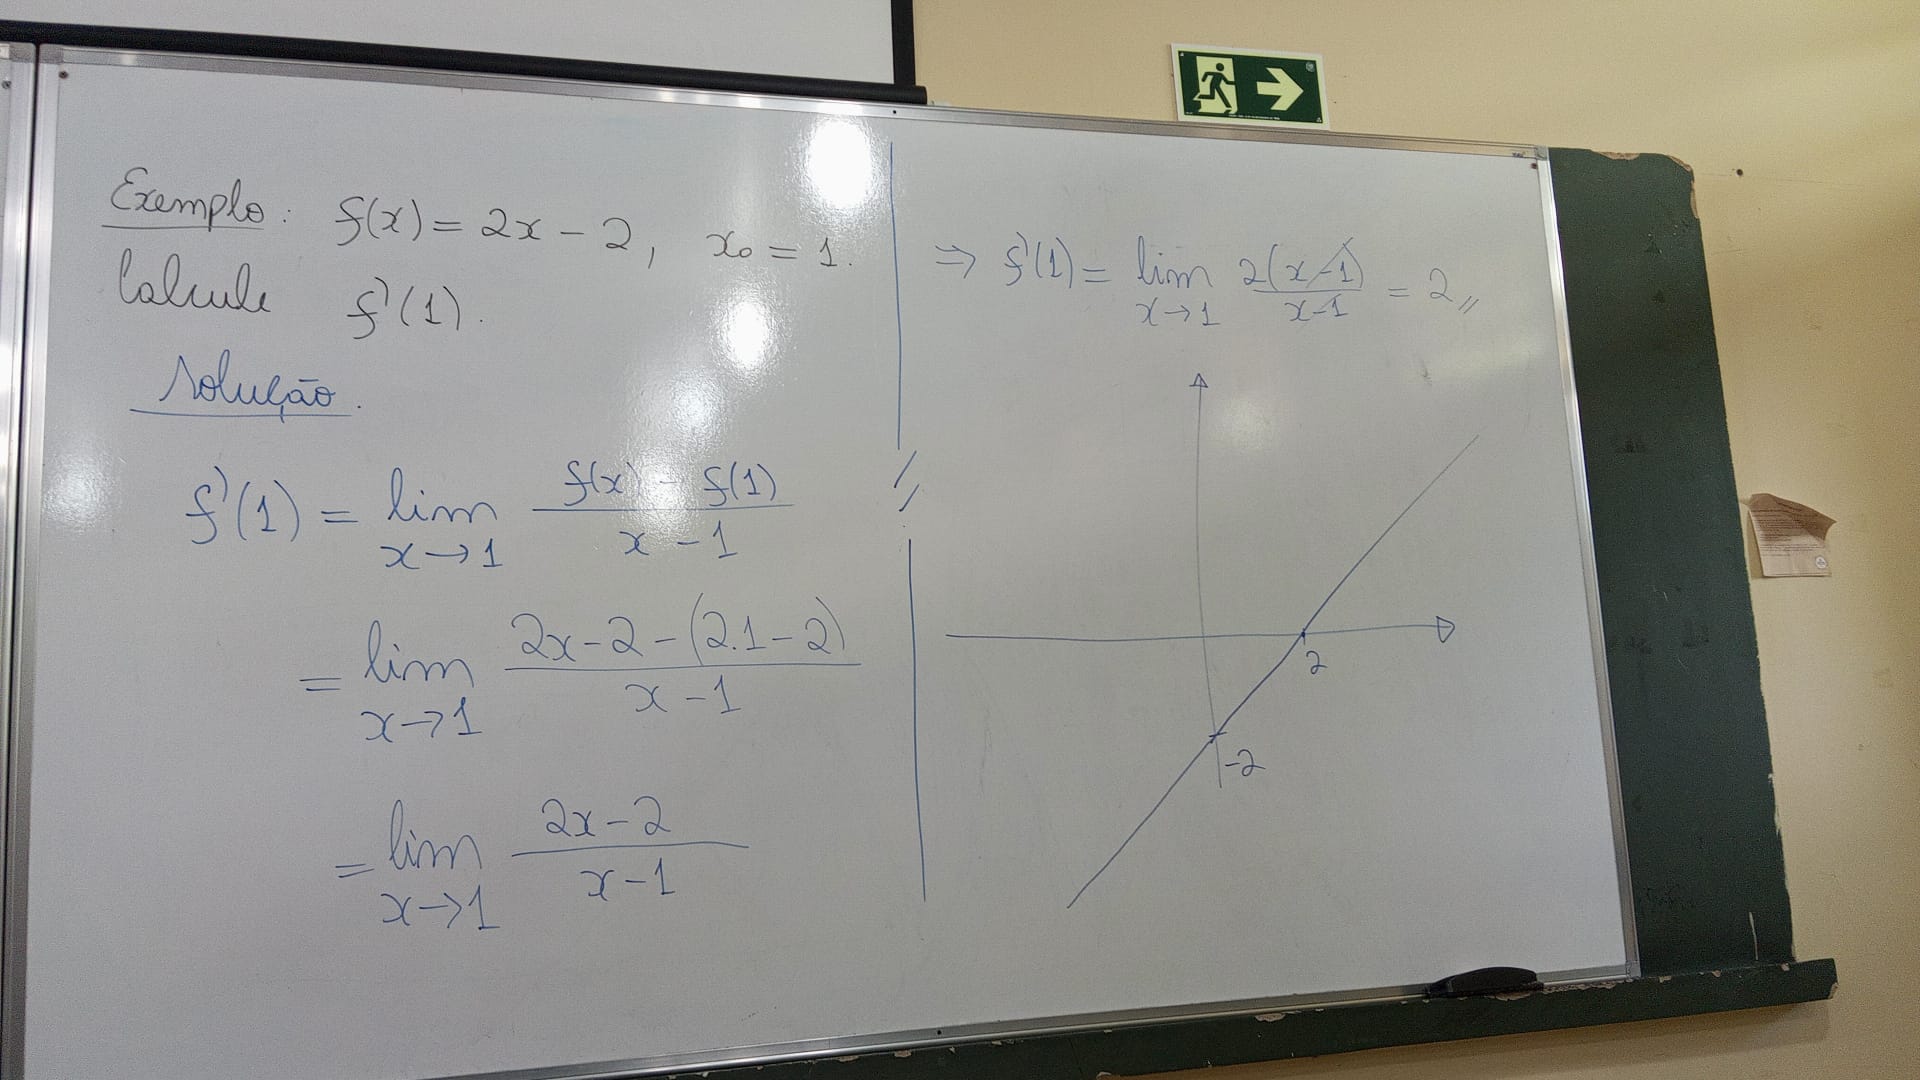 Exemplo: f(x) = 2x - 2, x₀ = 1.
Calcule f'(1).
Solução.
f'(1) = lim x→1 (f(x) - f(1))/(x - 1)
= lim x→1 (2x - 2 - (2.1 - 2))/(x - 1)
= lim x→1 (2x - 2)/(x - 1)
⇒ f'(1) = lim x→1 2(x - 1)/(x - 1) = 2,,
2
-2